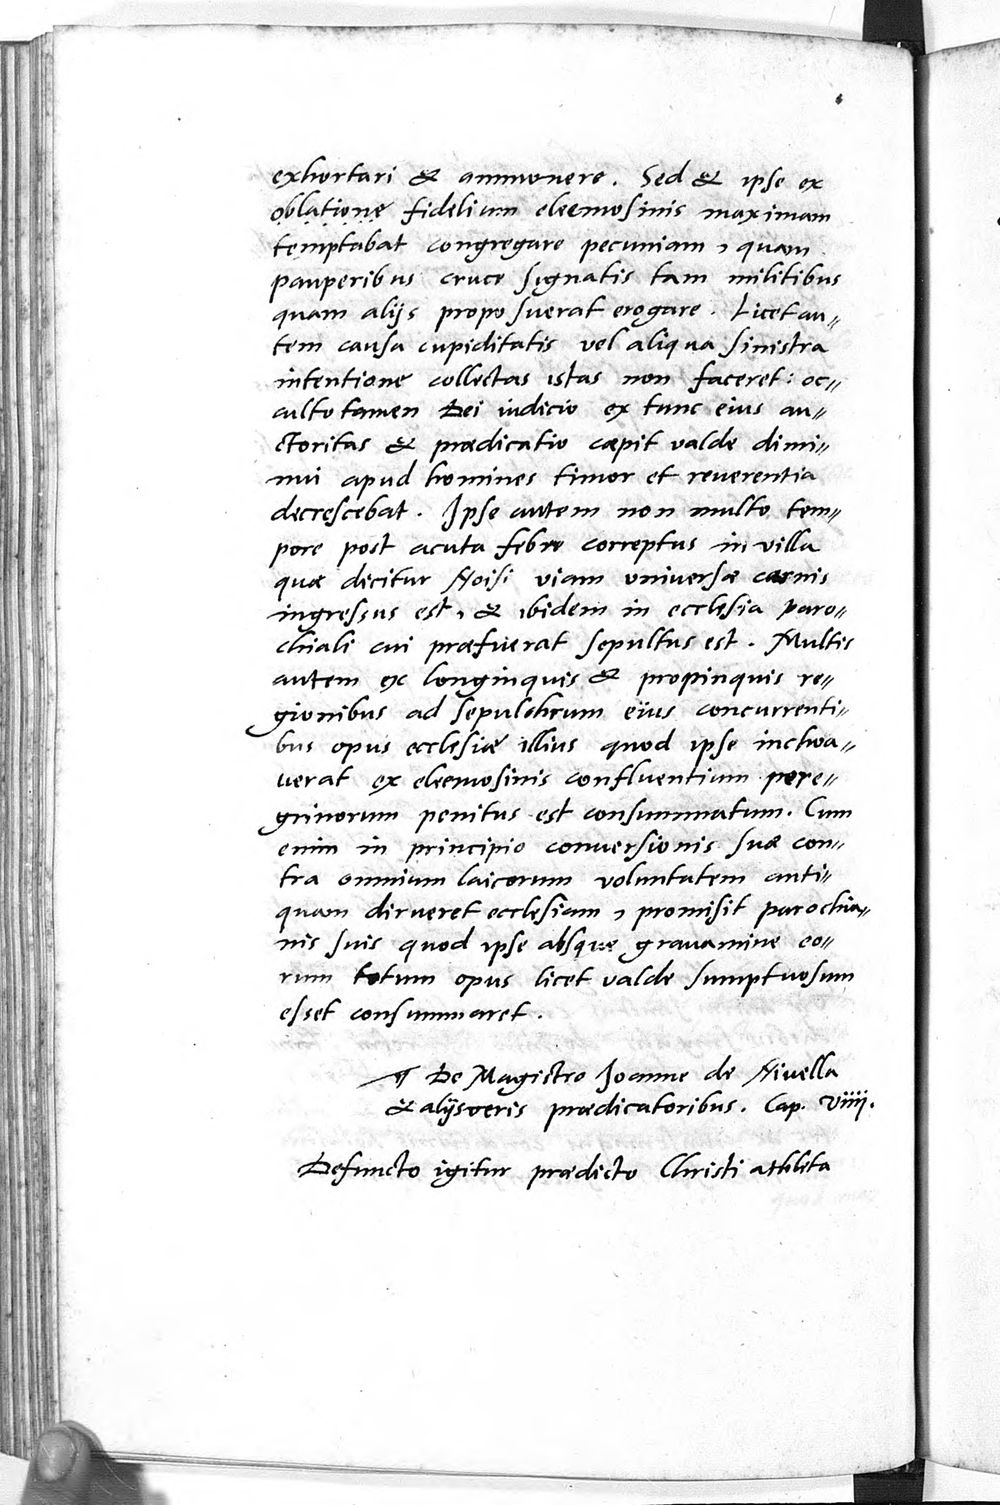 exhortari & ammonere. Sed & ipse ex
oblatione fidelium eleemosinis maximam
temptabat congregare pecuniam, quam
pauperibus cruce signatis tam militibus
quam alijs proposuerat erogare. Licet au„
tem causa cupiditatis vel aliqua sinistra
intentione collectas istas non faceret: oc„
culto tamen Dei iudicio ex tunc eius au„
ctoritas & prædicatio cæpit valde dimi„
nui apud homines timor et reuerentia
decrescebat. Ipse autem non multo tem„
pore post acuta febre correptus in villa
quæ dicitur Noisi viam vniversæ carnis
ingressus est, & ibidem in ecclesia paro„
chiali cui præfuerat sepultus est. Multis
autem ex longinquis & propinquis re„
gionibus ad sepulchrum eius concurrenti„
bus opus ecclesiæ illius quod ipse inchoa„
uerat ex eleemosinis confluentium pere„
grinorum penitus est consummatum. Cum
enim in principio conuersionis suæ con„
tra omnium laicorum voluntatem anti„
quam dirueret ecclesiam, promisit parochia„
nis suis quod ipse absque grauamine eo„
rum totum opus licet valde sumptuosum
esset consummaret.
¶ De Magistro Joanne de Niuella
& alijs veris prædicatoribus. Cap. viiii.
Defuncto igitur prædicto Christi athleta